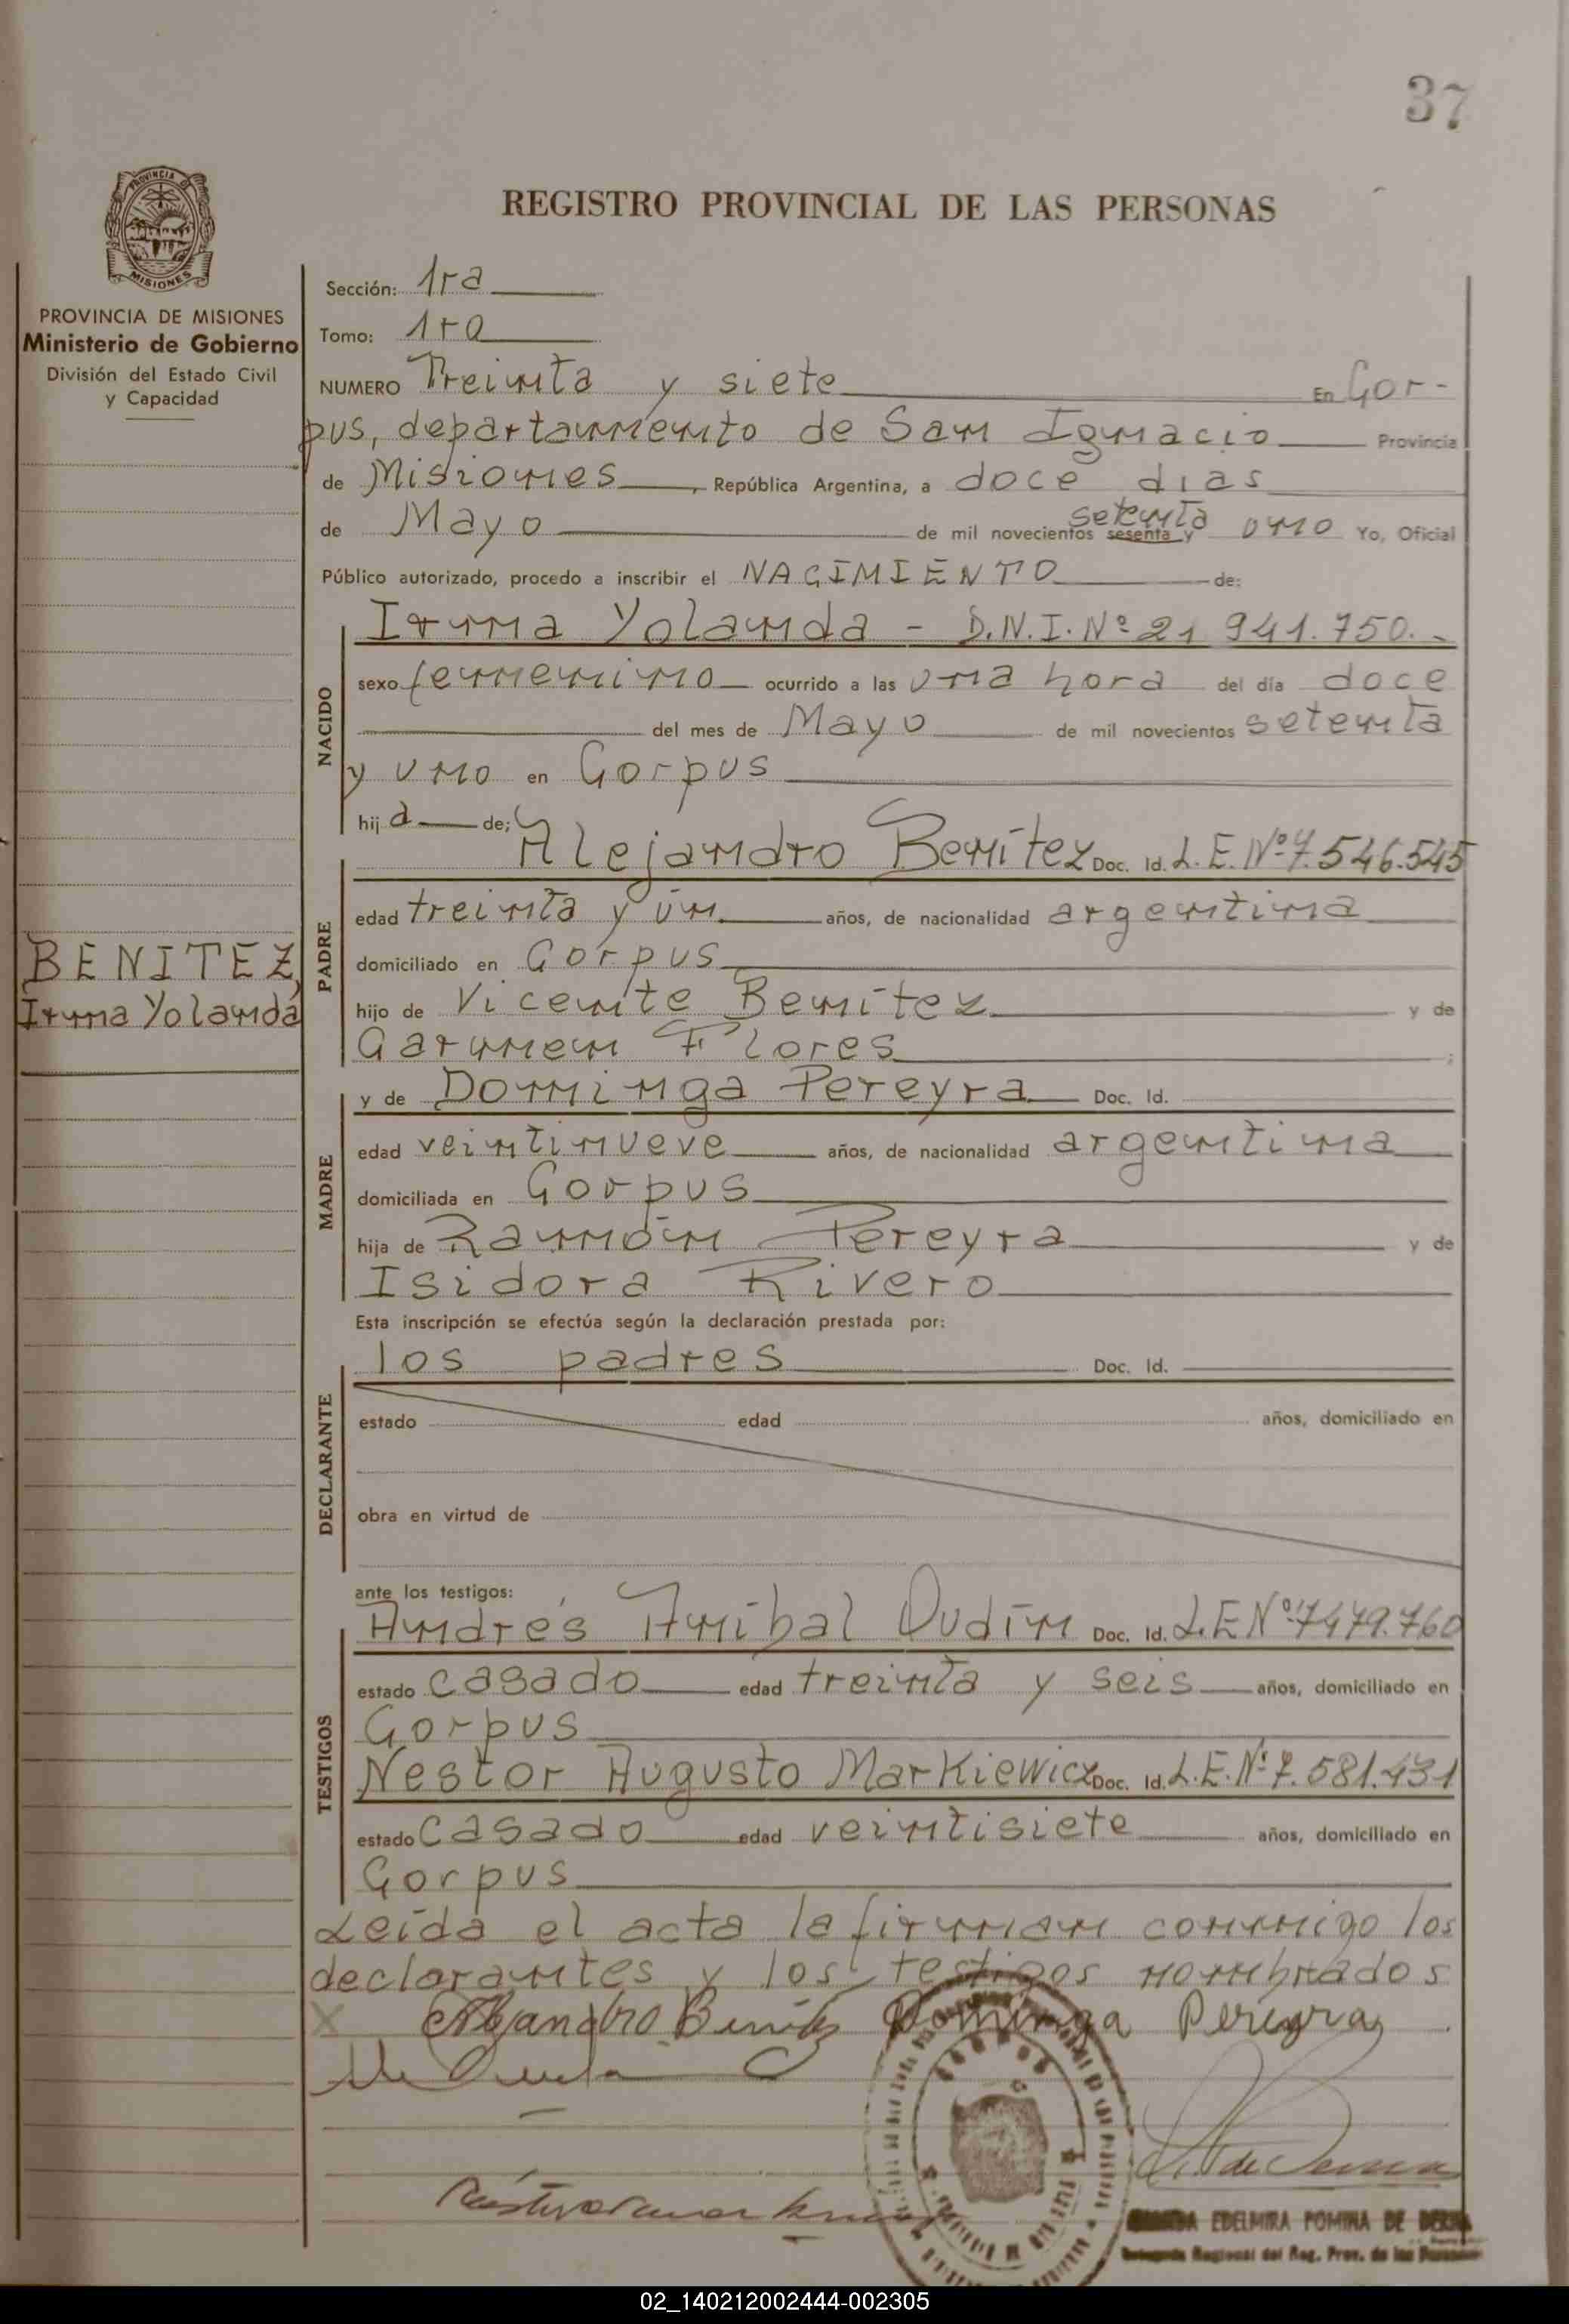 37
PROVINCIA DE
MISIONES
REGISTRO PROVINCIAL DE LAS PERSONAS
PROVINCIA DE MISIONES
Ministerio de Gobierno
División del Estado Civil
y Capacidad
BENITEZ,
Irma Yolanda
Sección: 1ra
Tomo: 1ro
NUMERO Treinta y siete En Cor-
pus, departamento de San Ignacio Provincia
de Misiones, República Argentina, a doce dias
de Mayo de mil novecientos sesenta y setenta uno Yo, Oficial
Público autorizado, procedo a inscribir el NACIMIENTO de:
NACIDO
Irma Yolanda - D.N.I. Nº 21 941.750.-
sexo femenino ocurrido a las una hora del día doce
del mes de Mayo de mil novecientos setenta
y uno en Corpus
hija de;
PADRE
Alejandro Benítez Doc. Id. L.E. Nº 7.546.545
edad treinta y un años, de nacionalidad argentina
domiciliado en Corpus
hijo de Vicente Benítez y de
Carmen Flores ;
MADRE
y de Dominga Pereyra Doc. Id.
edad veintinueve años, de nacionalidad argentina
domiciliada en Corpus
hija de Ramón Pereyra y de
Isidora Rivero
Esta inscripción se efectúa según la declaración prestada por:
DECLARANTE
los padres Doc. Id.
estado edad años, domiciliado en
obra en virtud de
ante los testigos:
TESTIGOS
Andrés Anibal Dudín Doc. Id. L.E Nº 7479.760
estado casado edad treinta y seis años, domiciliado en
Corpus
Nestor Augusto Markiewicz Doc. Id. L.E. Nº 7.581.431
estado casado edad veintisiete años, domiciliado en
Corpus
Leída el acta la firman conmigo los
declarantes y los testigos nombrados
Alejandro Benítez Dominga Pereyra
EDELMIRA POMINA DE
Regional del Reg. Prov. de las Personas
02_140212002444-002305